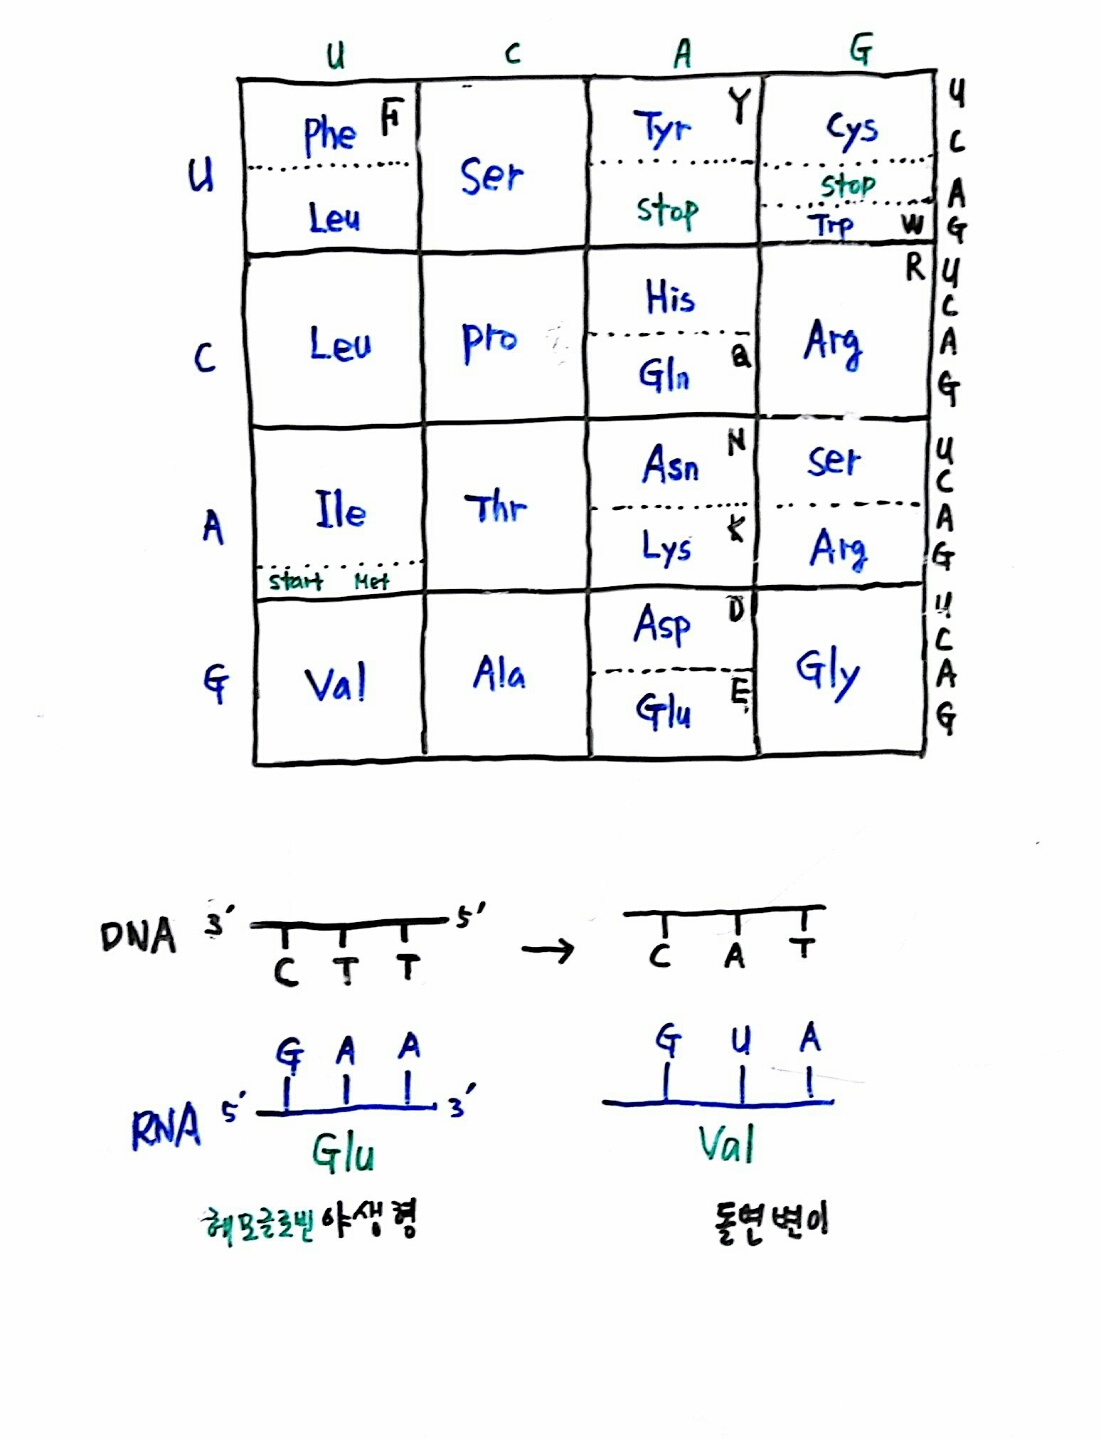 U C A G
Phe F Ser Tyr Y Cys U
U C
Leu stop stop A
Trp W G
C Leu Pro His Arg R U
C
Gln Q A
G
A Ile Thr Asn N Ser U
C
Lys K Arg A
start Met G
G Val Ala Asp D Gly U
C
Glu E A
G
DNA 3' C T T 5' → C A T
RNA 5' G A A 3' G U A
Glu Val
헤모글로빈 야생형 돌연변이